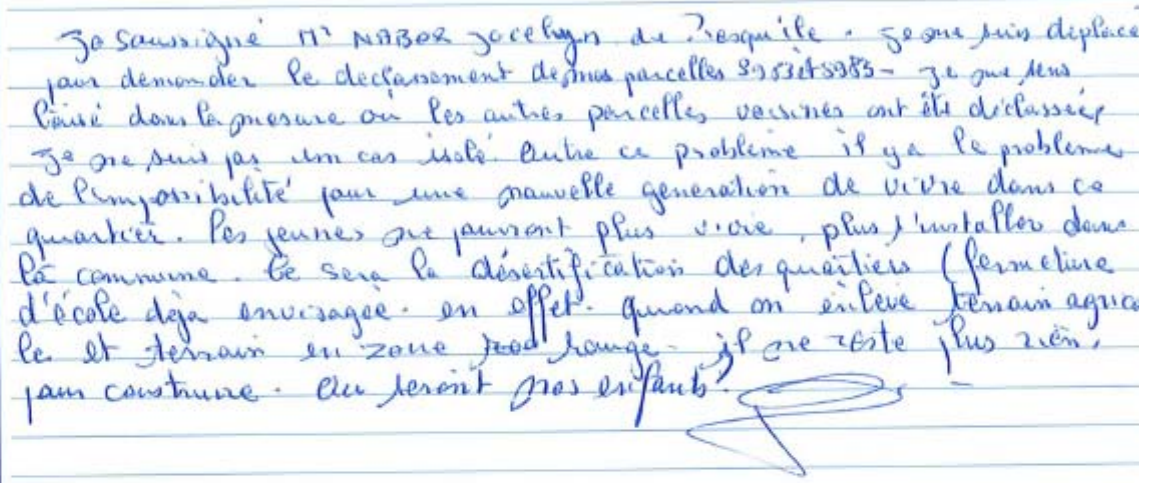 Je soussigné Mr NABOR Jocelyn de Presqu'ile. Je me suis déplacé
pour demander le declassement de mes parcelles S953 et S983 - Je me sens
lésé dans la mesure où les autres parcelles voisines ont été déclassées
Je ne suis pas un cas isolé. Outre ce problème il y a le problème
de l'impossibilité pour une nouvelle generation de vivre dans ce
quartier. Les jeunes ne pourront plus vivre, plus s'installer dans
la commune. Ce sera la désertification des quartiers (fermeture
d'école déja envisagée. en effet. quand on enlève terrain agrico
le et terrain en zone rouge. il ne reste plus rien,
pour construire. Ou seront nos enfants?